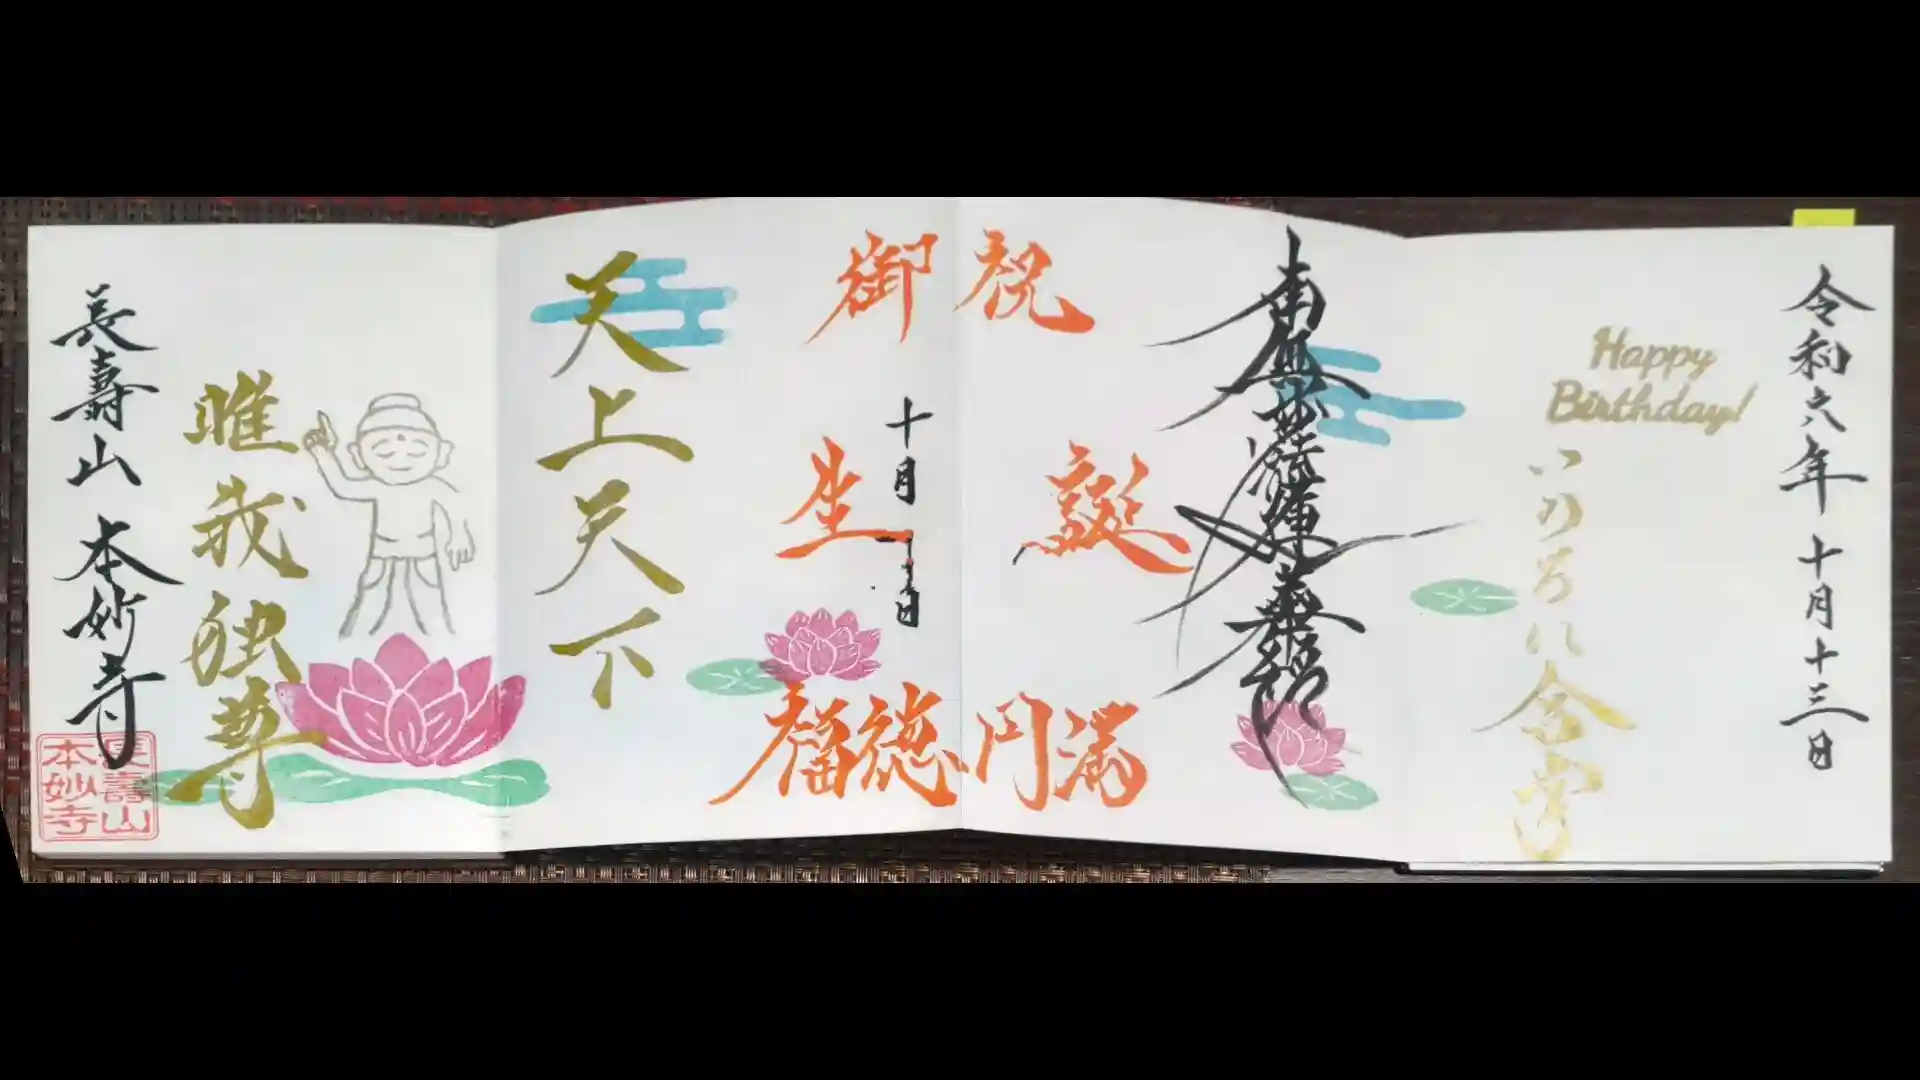 令和六年 十月十三日
Happy
Birthday!
いのちに合掌
南無妙法蓮華経
御祝
生誕
福徳円満
十月 日
天上天下
唯我独尊
長壽山 本妙寺
長壽山
本妙寺